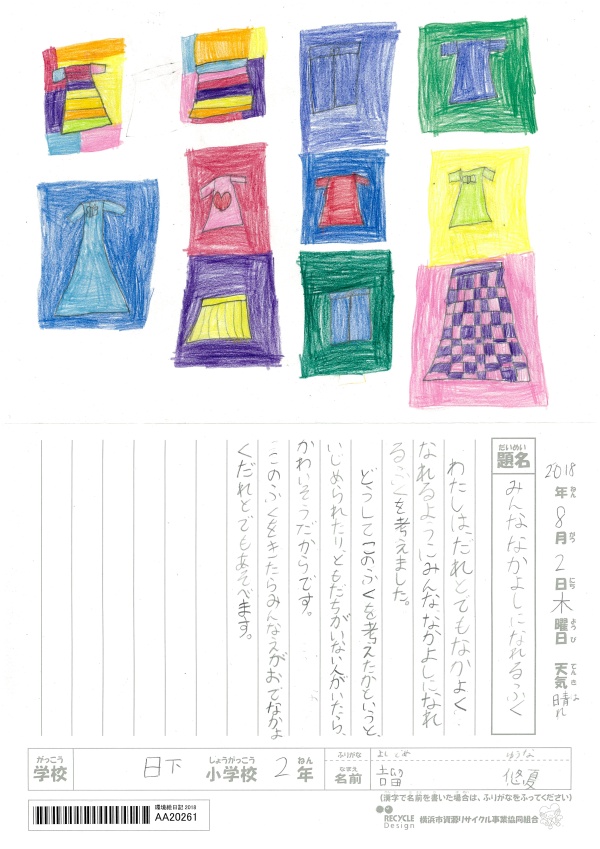 2018年8月2日木曜日 天気晴れ
ねん がつ にち ようび てんき は
だいめい
題名
みんななかよしになれるふく
わたしは、だれとでもなかよく
なれるようにみんな、なかよしになれ
るふくを考えました。
どうしてこのふくを考えたかというと、
いじめられたり、ともだちがいない人がいたら、
かわいそうだからです。
このふくをきたらみんなえがおでなかよ
くだれとでもあそべます。
がっこう しょうがっこう ねん ふりがな
学校 日下 小学校 2年
なまえ ゆうな
名前 悠夏
(漢字で名前を書いた場合は、ふりがなをふってください)
環境絵日記 2018
AA20261
RECYCLE Design 横浜市資源リサイクル事業協同組合